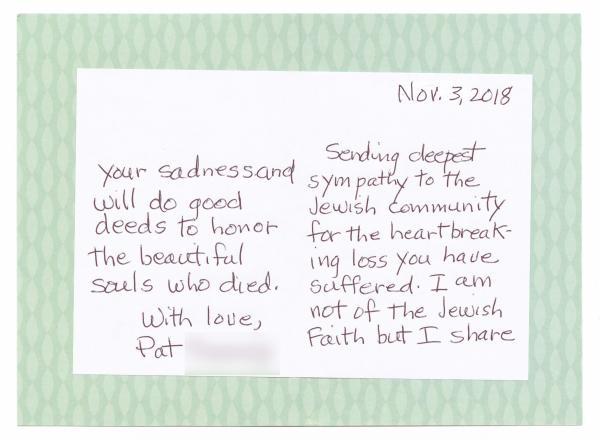 Nov. 3, 2018
Sending deepest
sympathy to the
Jewish community
for the heartbreak-
ing loss you have
suffered. I am
not of the Jewish
Faith but I share
your sadness and
will do good
deeds to honor
the beautiful
souls who died.
With love,
Pat